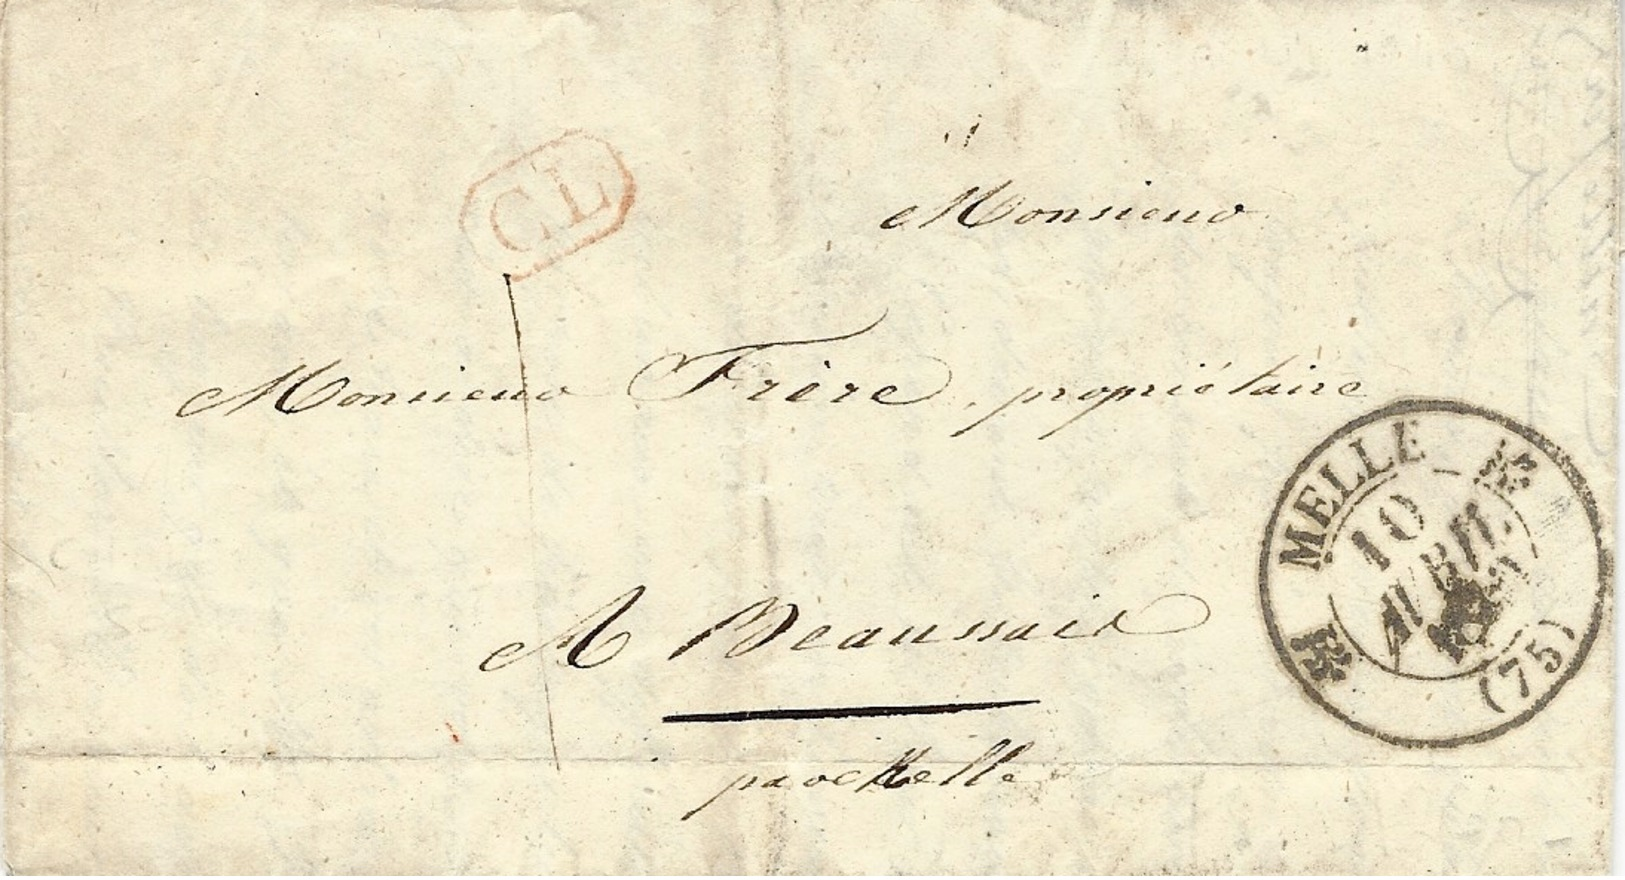 CL
Monsieur
Monsieur Frère, propriétaire
A Beaussais
par Melle
MELLE
10
AVRIL
(75)